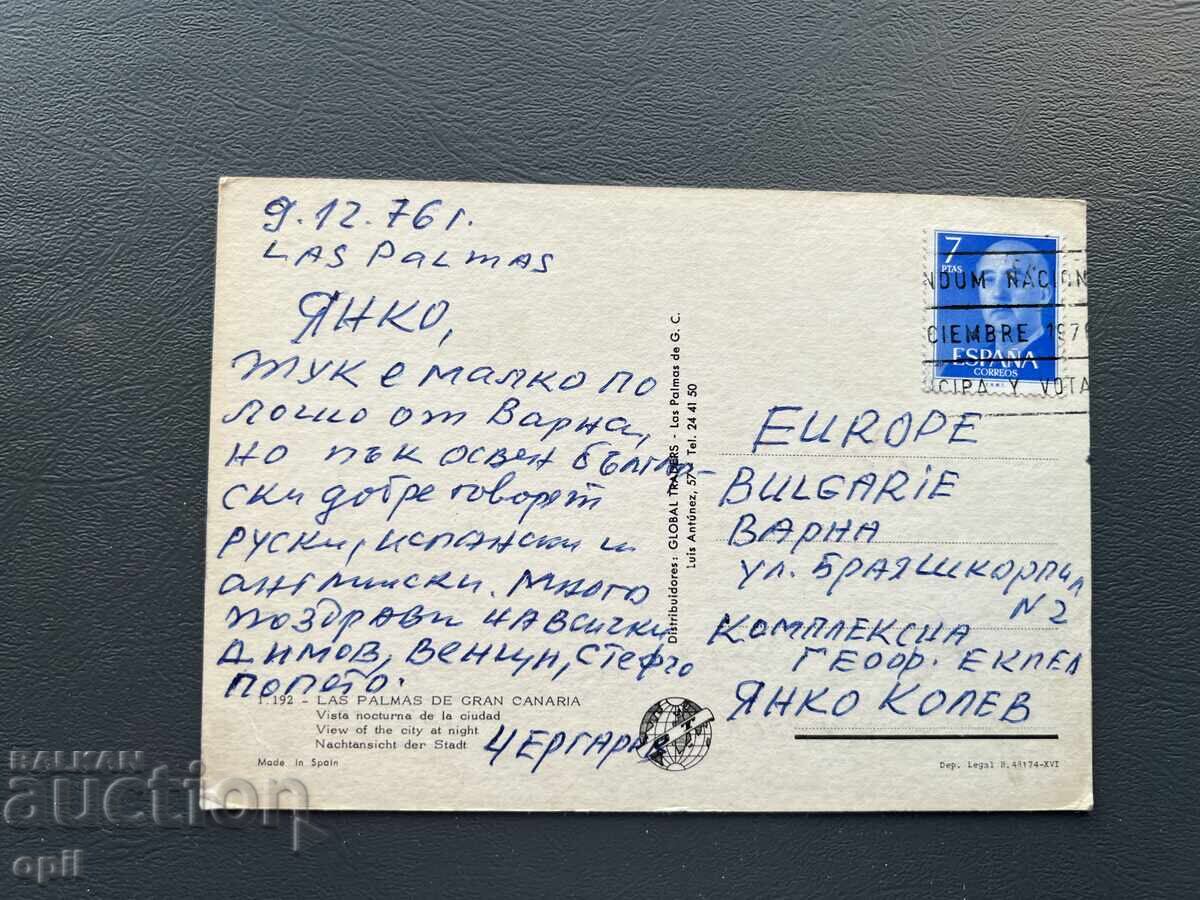 9.12.76 г.
LAS PALMAS
ЯНКО,
Тук е малко по
лошо от Варна,
но пък освен българ-
ски добре говорят
руски, испански и
английски. Много
поздрави на всички
Димов, Венцин, Стефчо
Попето.
ЧЕРГАРЯ
1.192 - LAS PALMAS DE GRAN CANARIA
Vista nocturna de la ciudad
View of the city at night
Nachtansicht der Stadt
Made in Spain
Distribuidores: GLOBAL TRADERS - Las Palmas de G. C.
Luis Antúnez, 57 - Tel. 24 41 50
7
PTAS
ESPAÑA
CORREOS
NDUM NACION
CIEMBRE 197
CIPA Y VOTA
EUROPE
BULGARIE
ВАРНА
УЛ. БРАЯ ШКОРПИЛ
N 2
КОМПЛЕКСНА
ГЕООР. ЕКПЕЛ
ЯНКО КОЛЕВ
Dep. Legal B. 48174-XVI
BALKAN
auction
opll